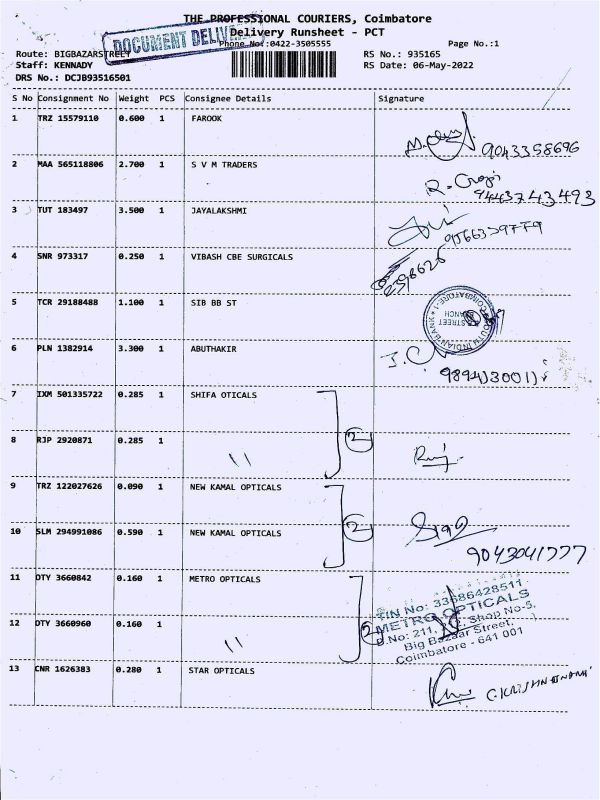 THE PROFESSIONAL COURIERS, Coimbatore
DOCUMENT DELIVE
Delivery Runsheet - PCT
Phone No.:0422-3505555
Page No.:1
Route: BIGBAZARSTREET
RS No.: 935165
Staff: KENNADY
RS Date: 06-May-2022
DRS No.: DCJB93516501
S No Consignment No Weight PCS Consignee Details Signature
1 TRZ 15579110 0.600 1 FAROOK
9043358696
2 MAA 565118806 2.700 1 S V M TRADERS
9443743493
3 TUT 183497 3.500 1 JAYALAKSHMI
4 SNR 973317 0.250 1 VIBASH CBE SURGICALS
5 TCR 29188488 1.100 1 SIB BB ST
SOUTH INDIAN BANK
STREET
BRANCH
COIMBATORE-1
6 PLN 1382914 3.300 1 ABUTHAKIR
7 IXM 501335722 0.285 1 SHIFA OTICALS
2
8 RJP 2920871 0.285 1 "
9 TRZ 122027626 0.090 1 NEW KAMAL OPTICALS
2
10 SLM 294991086 0.590 1 NEW KAMAL OPTICALS
9043041777
11 OTY 3660842 0.160 1 METRO OPTICALS
TIN No: 33686428511
METRO OPTICALS
2
12 OTY 3660960 0.160 1 "
D.No: 211, Shop No-5,
Big Bazaar Street,
Coimbatore - 641 001
13 CNR 1626383 0.280 1 STAR OPTICALS